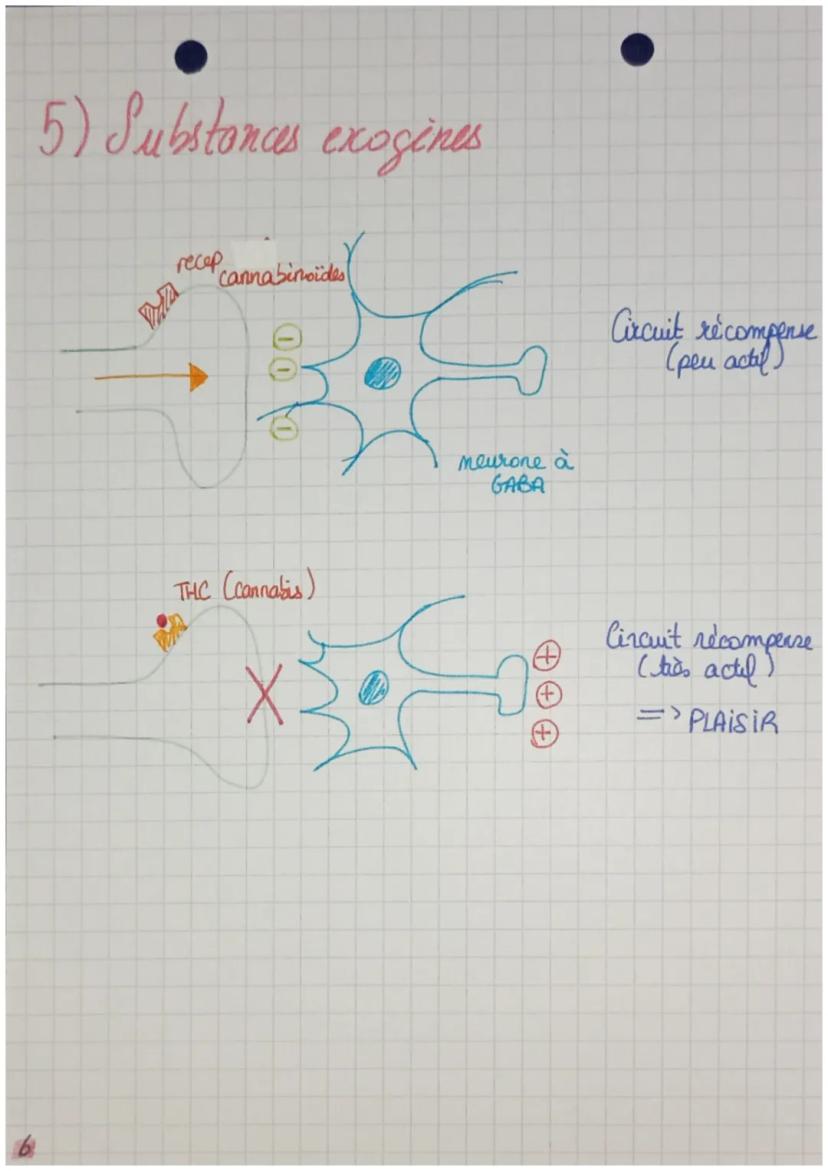 5) Substances exogines
recep
cannabinoïdes
⊖
⊖
⊖
neurone à
GABA
Circuit récompense
(peu actif)
THC (cannabis)
⊕
⊕
⊕
Circuit récompense
(très actif)
=> PLAISIR
6